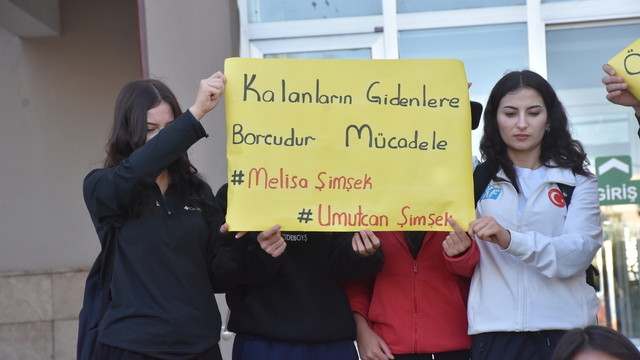 Kalanların Gidenlere
Borcudur Mücadele
#Melisa Şimşek
#Umutcan Şimşek
GİRİŞ